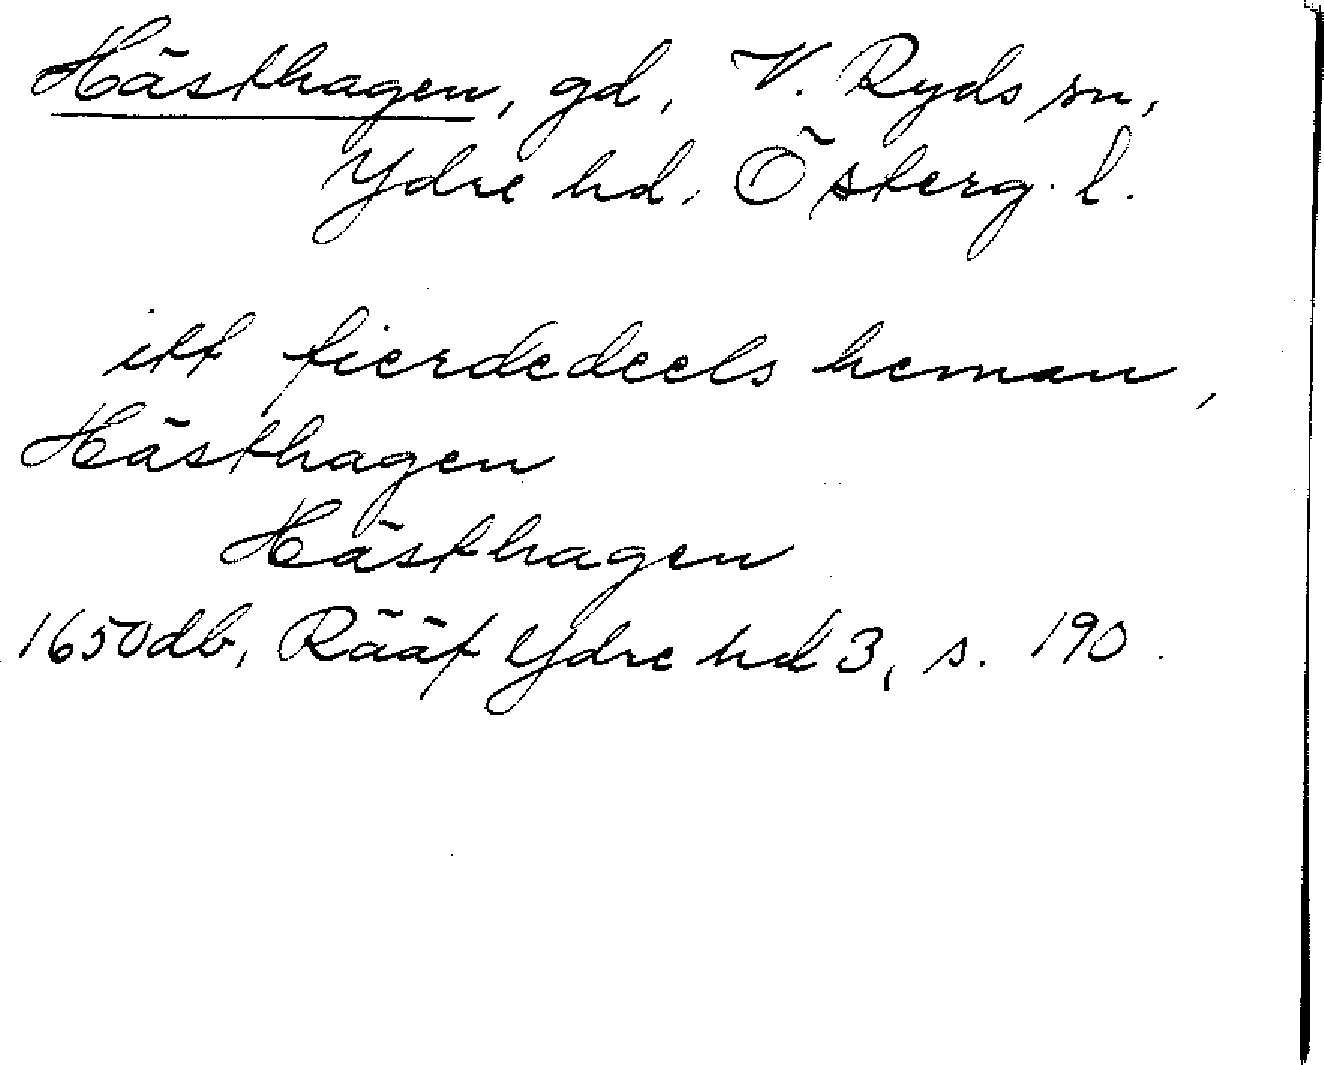 Hästhagen, gd, V. Ryds sn,
Ydre hd, Österg. l.
itt fierdedeels heman,
Hästhagen
Hästhagen
1650 db, Rääf Ydre hd 3, s. 190.